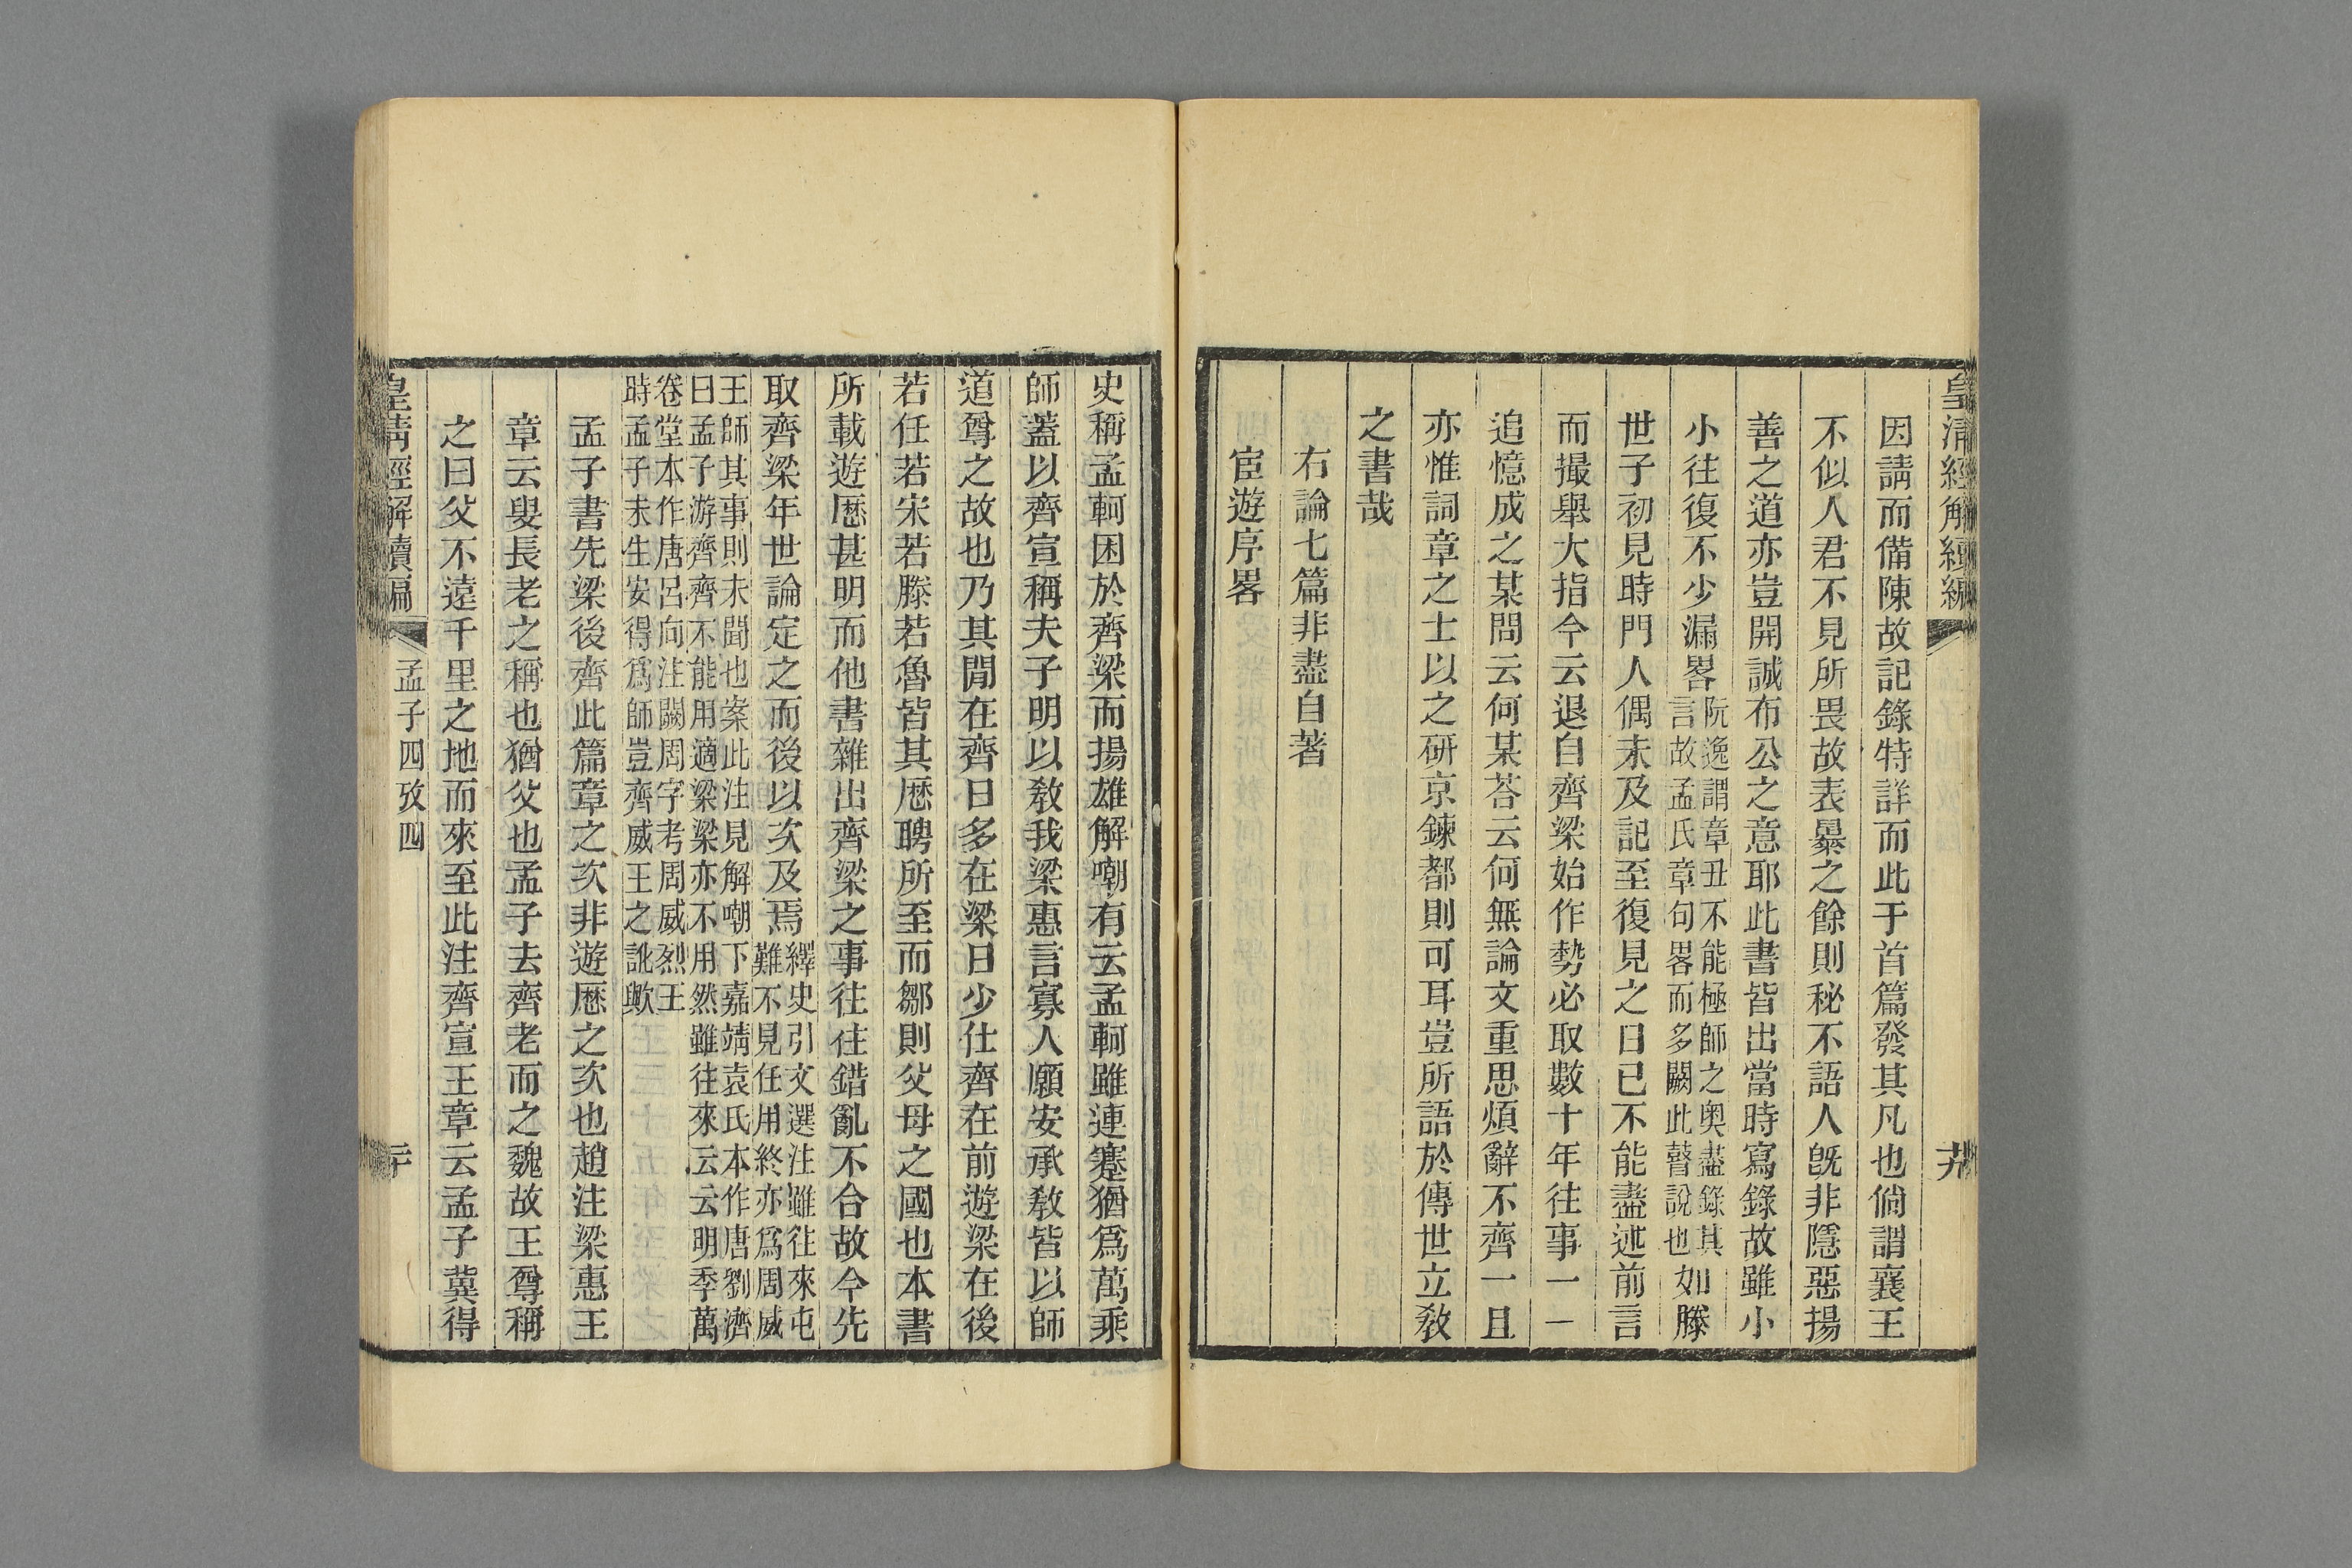 皇清經解續編
因請而備陳故記錄特詳而此于首篇發其凡也倘謂襄王
不似人君不見所畏故表暴之餘則秘不語人旣非隱惡揚
善之道亦豈開誠布公之意耶此書皆出當時寫錄故雖小
小往復不少漏畧阮逸謂章丑不能極師之奥盡錄其言故孟氏章句畧而多闕此瞽說也如滕
世子初見時門人偶未及記至復見之日已不能盡述前言
而撮舉大指今云退自齊梁始作勢必取數十年往事一一
追憶成之某問云何某荅云何無論文重思煩辭不齊一且
亦惟詞章之士以之研京鍊都則可耳豈所語於傳世立敎
之書哉
右論七篇非盡自著
宦遊序畧
史稱孟軻困於齊梁而揚雄解嘲有云孟軻雖連蹇猶爲萬乘
師蓋以齊宣稱夫子明以敎我梁惠言寡人願安承敎皆以師
道尊之故也乃其閒在齊日多在梁日少仕齊在前遊梁在後
若任若宋若滕若魯皆其厯聘所至而鄒則父母之國也本書
所載遊厯甚明而他書雜出齊梁之事往往錯亂不合故今先
取齊梁年世論定之而後以次及焉繹史引文選注雖往來屯難不見任用終亦爲周威
王師其事則未聞也案此注見解嘲下嘉靖袁氏本作唐劉濟
曰孟子游齊齊不能用適梁梁亦不用然雖往來云云明季萬
卷堂本作唐呂向注闕周字考周威烈王
時孟子未生安得爲師豈齊威王之訛歟
孟子書先梁後齊此篇章之次非遊厯之次也趙注梁惠王
章云叟長老之稱也猶父也孟子去齊老而之魏故王尊稱
之曰父不遠千里之地而來至此注齊宣王章云孟子冀得
皇清經解續編
孟子四攷四